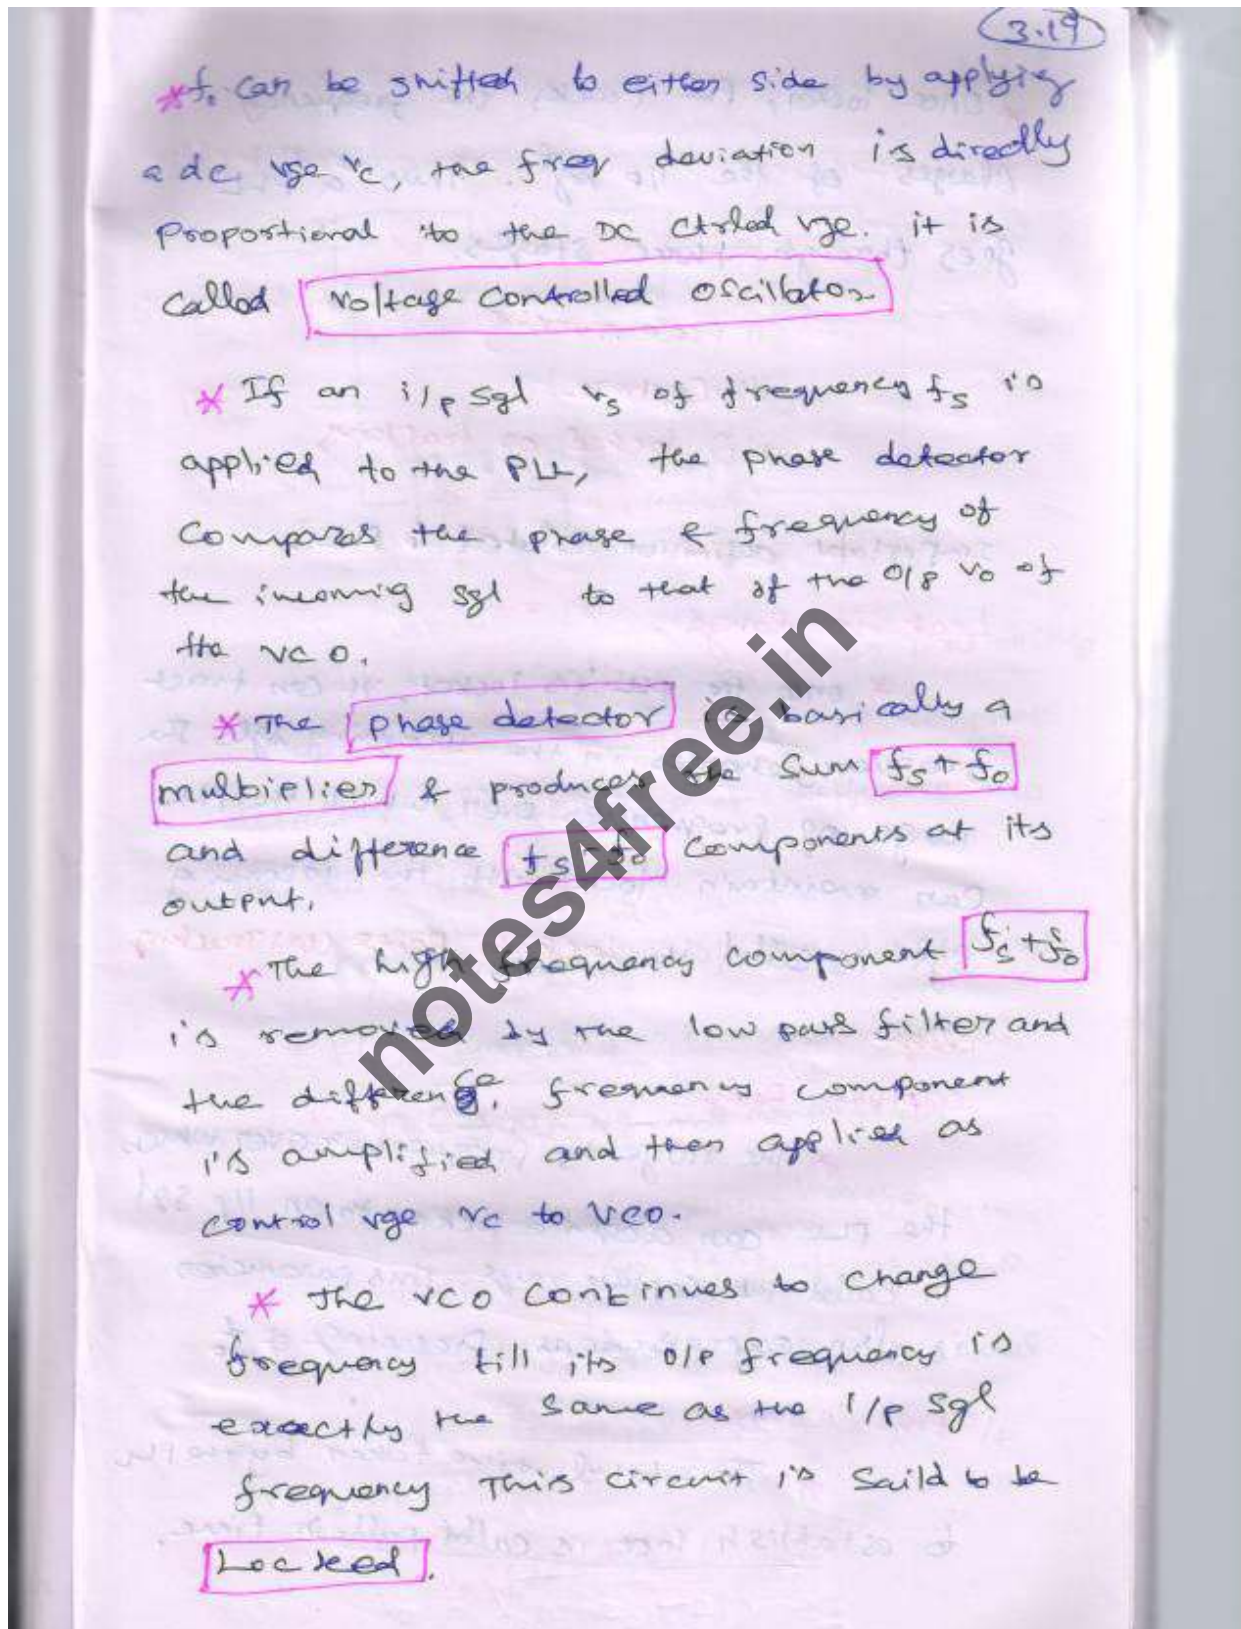 3.19
* fo can be shifted to either side by applying
a dc vge vc, the freq deviation is directly
proportional to the DC ctrled vge. it is
called voltage controlled oscillator
* If an i/p sgl vs of frequency fs is
applied to the PLL, the phase detector
compares the phase & frequency of
the incoming sgl to that of the o/p vo of
the VCO.
* The phase detector is basically a
multiplier & produces the sum fs + fo
and difference fs - fo components at its
output.
* The high frequency component fs + fo
is removed by the low pass filter and
the difference frequency component
is amplified and then applied as
control vge vc to VCO.
* The VCO continues to change
frequency till its o/p frequency is
exactly the same as the i/p sgl
frequency This circuit is saild to be
Locked.
notes4free.in